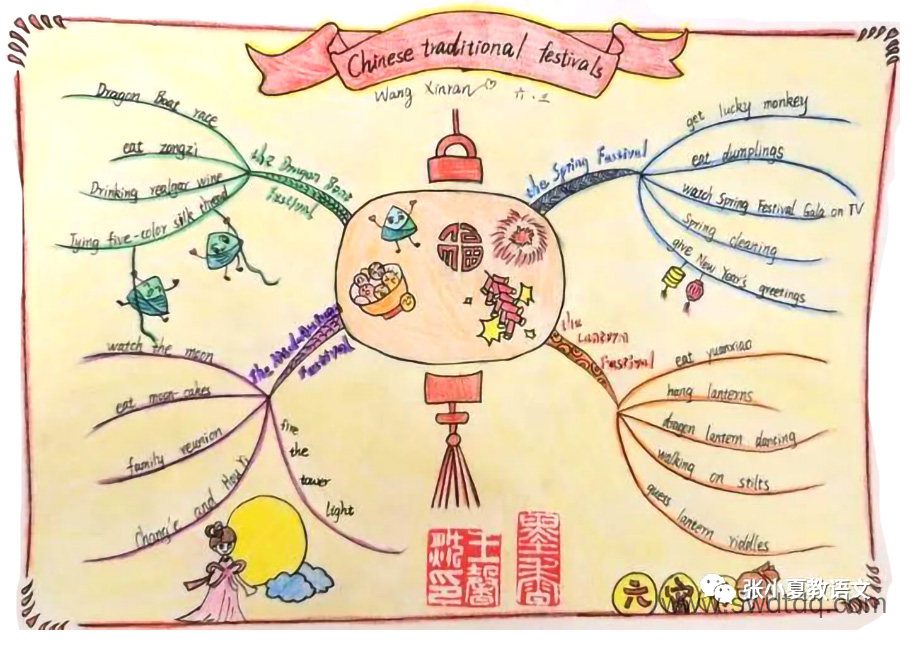 Chinese traditional festivals
Wang Xinran 六.三
the Dragon Boat Festival
Dragon Boat race
eat zongzi
Drinking realgar wine
Tying five-color silk thread
the Spring Festival
get lucky monkey
eat dumplings
watch Spring Festival Gala on TV
Spring cleaning
give New Year's greetings
福
The Mid-Autumn Festival
watch the moon
eat moon cakes
family reunion
Chang'e and Hou Yi
fire
the
tower
light
the
Lantern
Festival
eat yuanxiao
hang lanterns
dragon lantern dancing
walking on stilts
guess lantern riddles
墨香
张小夏教语文
www.swdtdq.com